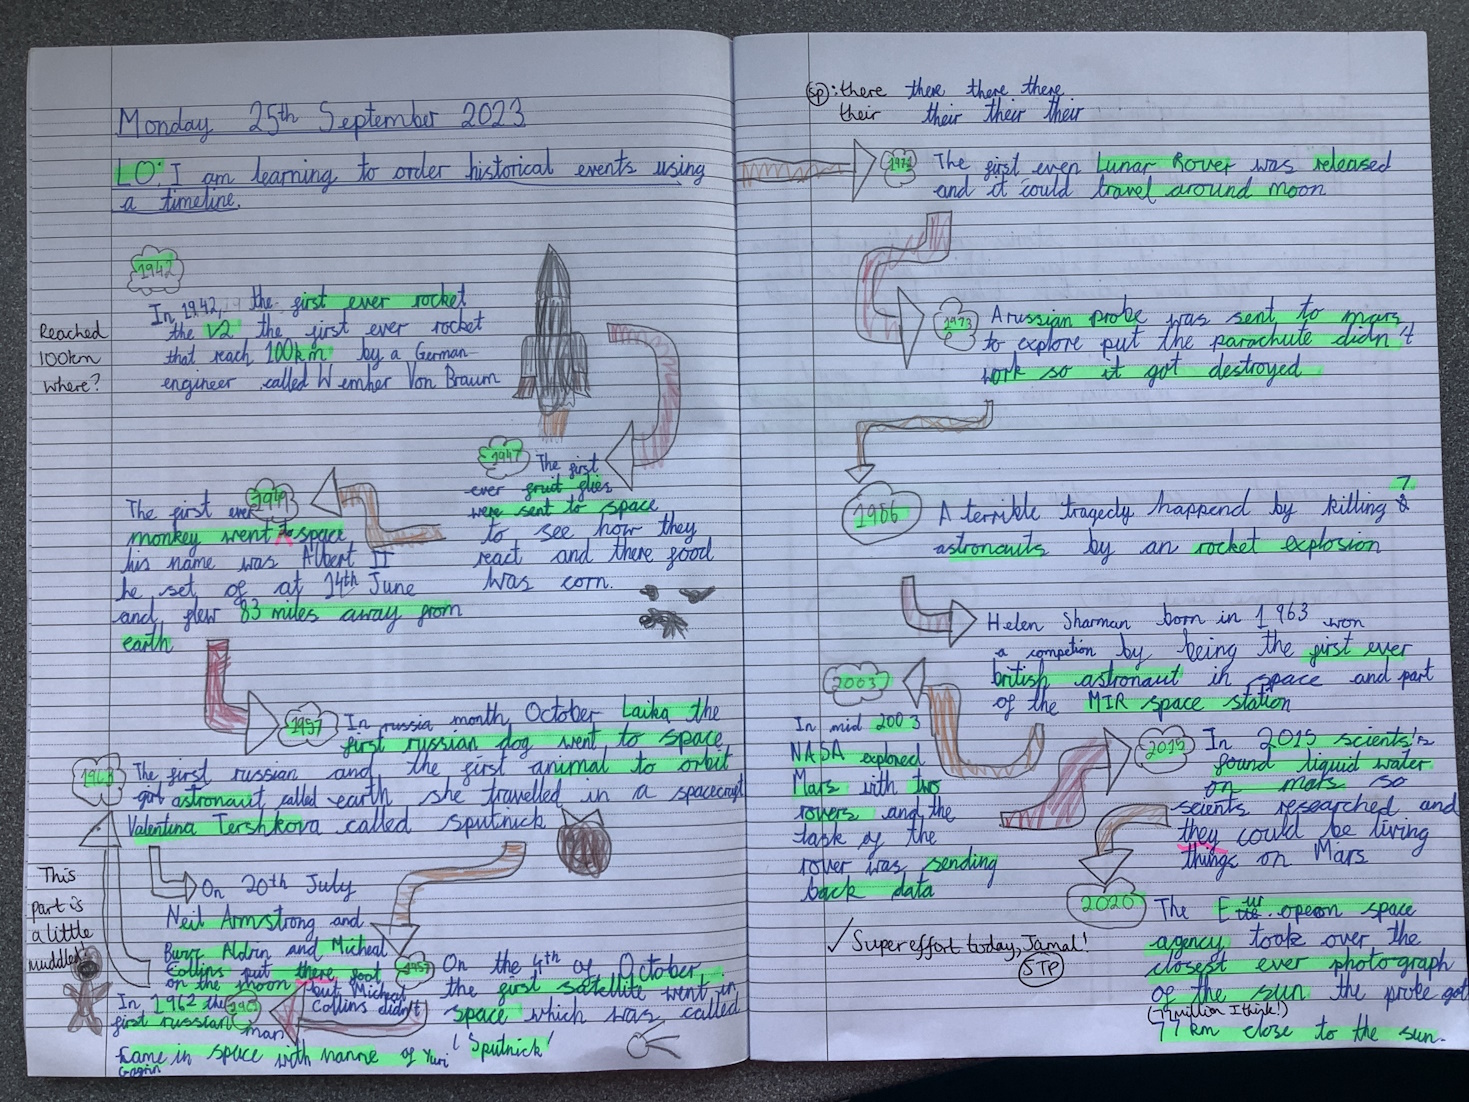 Monday 25th September 2023
LO: I am learning to order historical events using
a timeline.
1942
In 1942, the first ever rocket
the V2 the first ever rocket
that reach 100km by a German
engineer called Wernher Von Braum
Reached
100km
where?
1947
The first
ever fruit flies
were sent to space
to see how they
react and there food
was corn.
1949
The first ever
monkey went to space
his name was Albert II
he set of at 14th June
and flew 83 miles away from
earth
1957
In russia month, October Laika the
first russian dog went to space
and the first animal to orbit
earth she travelled in a spacecraft
called sputnick
The first russian
girl astronaut called
Valentina Tershkova
On 20th July
Neil Armstrong and
Burr Aldrin and Micheal
Collins put there foot
on the moon but Micheal
Collins didn't
This
part is
a little
muddled!
1957
On the 4th of October
the first satellite went in
space which was called
'Sputnick'
In 1962 the
first russian man
came in space with name of Yuri
Gagrin
sp: there there there there
their their their their
1971
The first even Lunar Rover was released
and it could travel around moon
1973
A russian probe was sent to mars
to explore put the parachute didn't
work so it got destroyed
1986
A terrible tragedy happend by killing 7
astronauts by an rocket explosion
Helen Sharman born in 1963 won
a competion by being the first ever
british astronaut in space and part
of the MIR space station
2003
In mid 2003
NASA explored
Mars with two
rovers and the
task of the
rover was sending
back data
2015
In 2015 scients's
found liquid water
on mars so
scients researched and
they could be living
things on Mars
2020
The European space
agency took over the
closest ever photograph
of the sun the probe got
(77 million I think!)
77 km close to the sun.
✓ Super effort today, Jamal!
STP